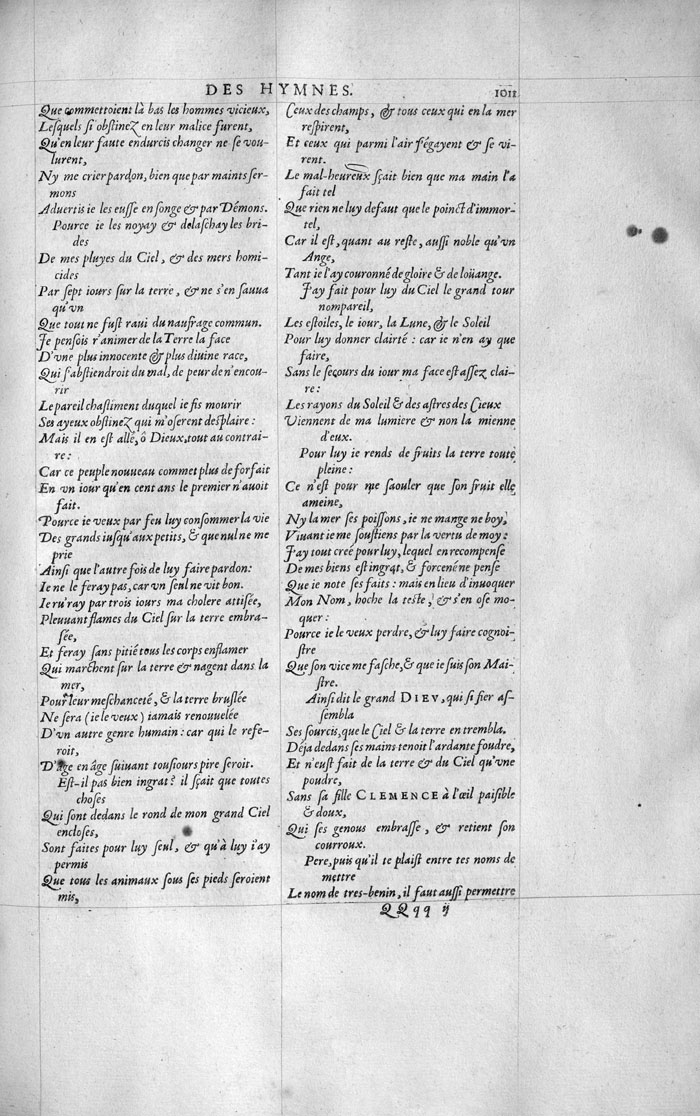 DES HYMNES.
1011
Que commettoient là bas les hommes vicieux,
Lesquels si obstinez en leur malice furent,
Qu'en leur faute endurcis changer ne se vou-
lurent,
Ny me crier pardon, bien que par maints ser-
mons
Aduertis ie les eusse en songe & par Démons.
Pource ie les noyay & delaschay les bri-
des
De mes pluyes du Ciel, & des mers homi-
cides
Par sept iours sur la terre, & ne s'en sauua
qu'vn
Que tout ne fust raui du naufrage commun.
Ie pensois r'animer de la Terre la face
D'vne plus innocente & plus diuine race,
Qui s'abstiendroit du mal, de peur de n'encou-
rir
Le pareil chastiment duquel ie fis mourir
Ses ayeux obstinez qui m'oserent desplaire :
Mais il en est allé, ô Dieux, tout au contrai-
re :
Car ce peuple nouueau commet plus de forfait
En vn iour qu'en cent ans le premier n'auoit
fait.
Pource ie veux par feu luy consommer la vie
Des grands iusqu'aux petits, & que nul ne me
prie
Ainsi que l'autre fois de luy faire pardon:
Ie ne le feray pas, car vn seul ne vit bon.
Ie ru'ray par trois iours ma cholere attisée,
Pleuuant flames du Ciel sur la terre embra-
sée,
Et feray sans pitié tous les corps enflamer
Qui marchent sur la terre & nagent dans la
mer,
Pour leur meschanceté, & la terre bruslée
Ne sera (ie le veux) iamais renouuelée
D'vn autre genre humain : car qui le refe-
roit,
D'âge en âge suiuant tousiours pire seroit.
Est-il pas bien ingrat? il sçait que toutes
choses
Qui sont dedans le rond de mon grand Ciel
encloses,
Sont faites pour luy seul, & qu'à luy i'ay
permis
Que tous les animaux sous ses pieds seroient
mis,
Ceux des champs, & tous ceux qui en la mer
respirent,
Et ceux qui parmi l'air s'égayent & se vi-
rent.
Le mal-heureux sçait bien que ma main l'a
fait tel
Que rien ne luy defaut que le poinct d'immor-
tel,
Car il est, quant au reste, aussi noble qu'vn
Ange,
Tant ie l'ay couronné de gloire & de loüange.
J'ay fait pour luy du Ciel le grand tour
nompareil,
Les estoiles, le iour, la Lune, & le Soleil
Pour luy donner clairté : car ie n'en ay que
faire,
Sans le secours du iour ma face est assez clai-
re :
Les rayons du Soleil & des astres des Cieux
Viennent de ma lumiere & non la mienne
d'eux.
Pour luy ie rends de fruits la terre toute
pleine :
Ce n'est pour me saouler que son fruit elle
ameine,
Ny la mer ses poissons, ie ne mange ne boy,
Viuant ie me soustiens par la vertu de moy :
J'ay tout creé pour luy, lequel en recompense
De mes biens est ingrat, & forcené ne pense
Que ie note ses faits : mais en lieu d'inuoquer
Mon Nom, hoche la teste, & s'en ose mo-
quer :
Pource ie le veux perdre, & luy faire cognoi-
stre
Que son vice me fasche, & que ie suis son Mai-
stre.
Ainsi dit le grand DIEV, qui si fier as-
sembla
Ses sourcis, que le Ciel & la terre en trembla.
Déja dedans ses mains tenoit l'ardante foudre,
Et n'eust fait de la terre & du Ciel qu'vne
poudre,
Sans sa fille CLEMENCE à l'œil paisible
& doux,
Qui ses genous embrasse, & retient son
courroux.
Pere, puis qu'il te plaist entre tes noms de
mettre
Le nom de tres-benin, il faut aussi permettre
QQqq ij